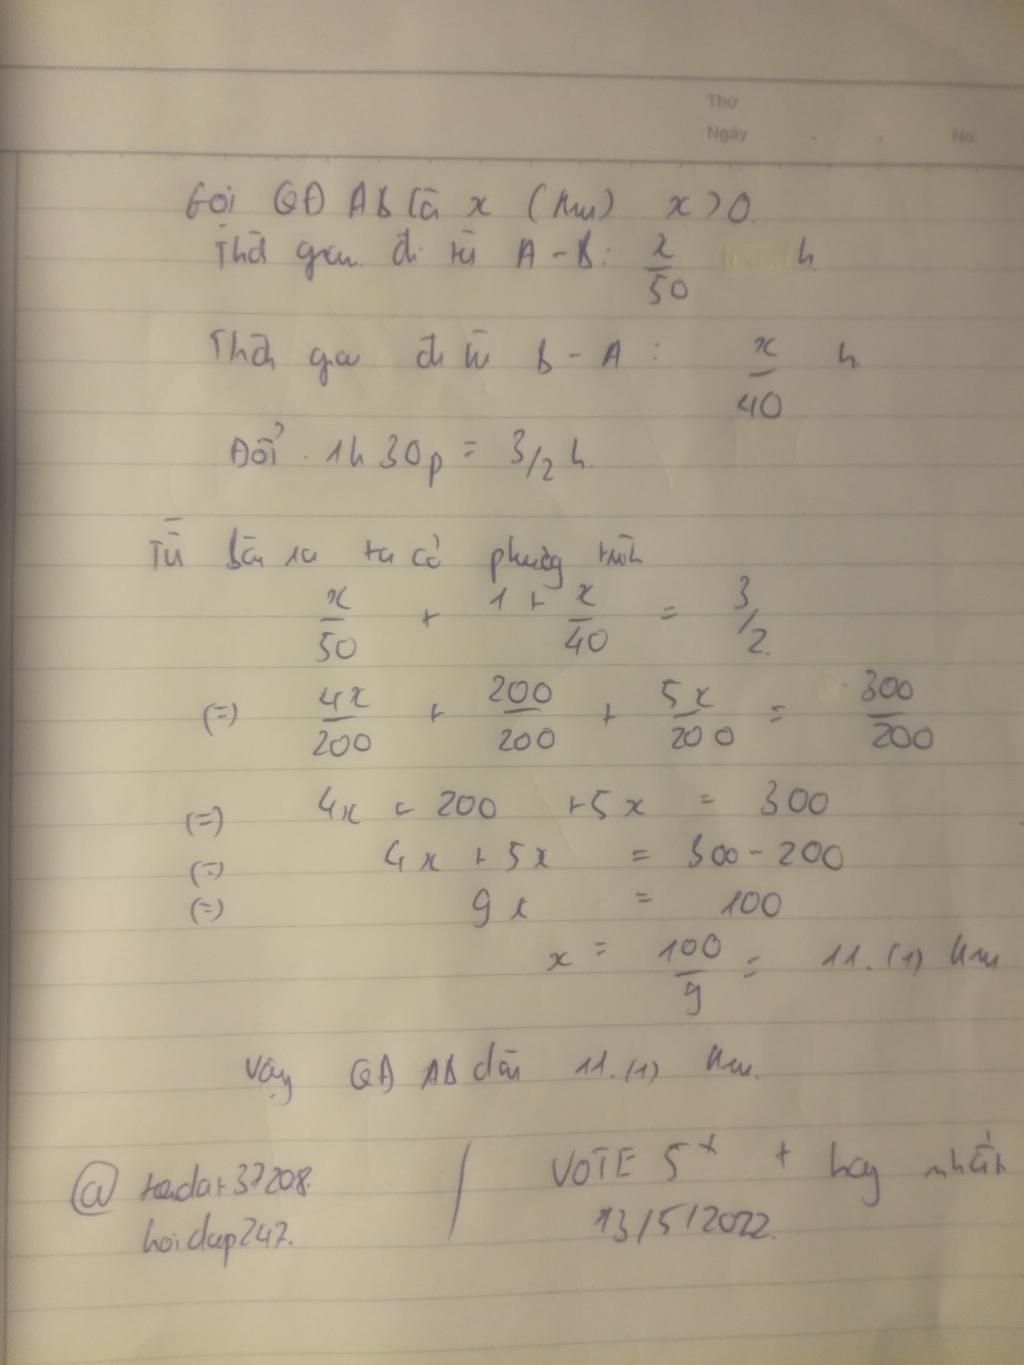 Thứ
Ngày No.
Gọi QĐ AB là x (km) x>0
Thời gian đi từ A-B: x/50 h
Thời gian đi từ B-A: x/40 h
Đổi 1h30p = 3/2 h.
Từ bài ra ta có phương trình
x/50 + 1 + x/40 = 3/2
(=) 4x/200 + 200/200 + 5x/200 = 300/200
(=) 4x + 200 +5x = 300
(=) 4x + 5x = 300 - 200
(=) 9x = 100
x = 100/9 = 11.(1) km
Vậy QĐ AB dài 11.(1) km.
@ 37208. / VOTE 5* + hay nhất
hoidap247. 13/5/2022.